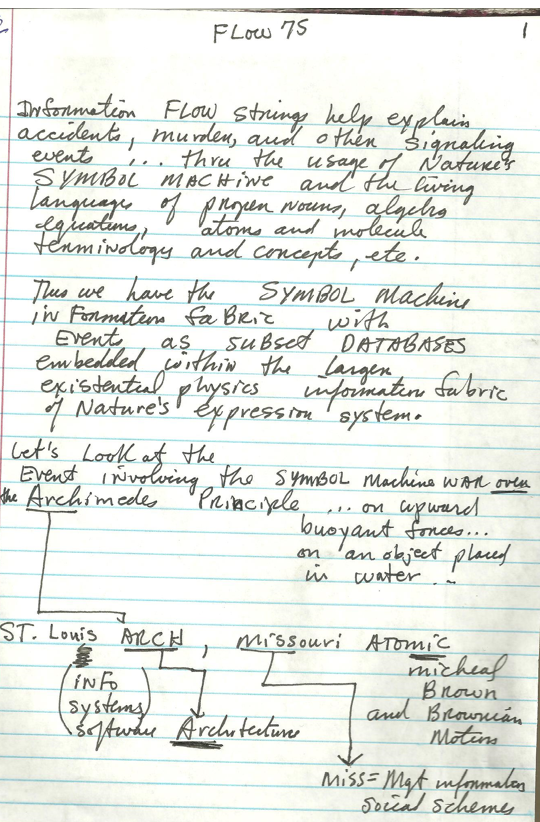 FLOW 75
1
Information FLOW strings help explain
accidents, murder, and other signaling
events ... thru the usage of Nature's
SYMBOL MACHINE and the living
languages of proper nouns, algebra
equations, atoms and molecule
terminology and concepts, etc.
Thus we have the SYMBOL Machine
inFormation faBric with
Events as subset DATABASES
embedded within the Larger
existential physics information fabric
of Nature's expression system.
Let's Look at the
Event involving the SYMBOL Machine WAR over
the Archimedes PRinciple ... on upward
buoyant forces...
on an object placed
in water ...
ST. Louis ARCH, Missouri ATOMIC
(info systems software)
Architecture
micheal
Brown
and Brownian
Motion
Miss = Mgt information
social schemes